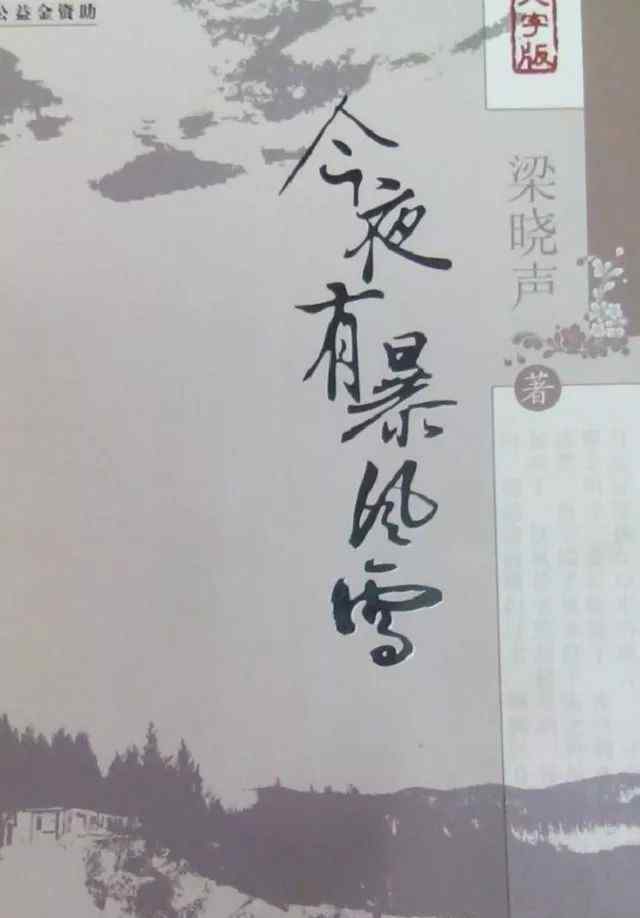 公益金資助
大字版
今夜有暴风雪
梁晓声
著